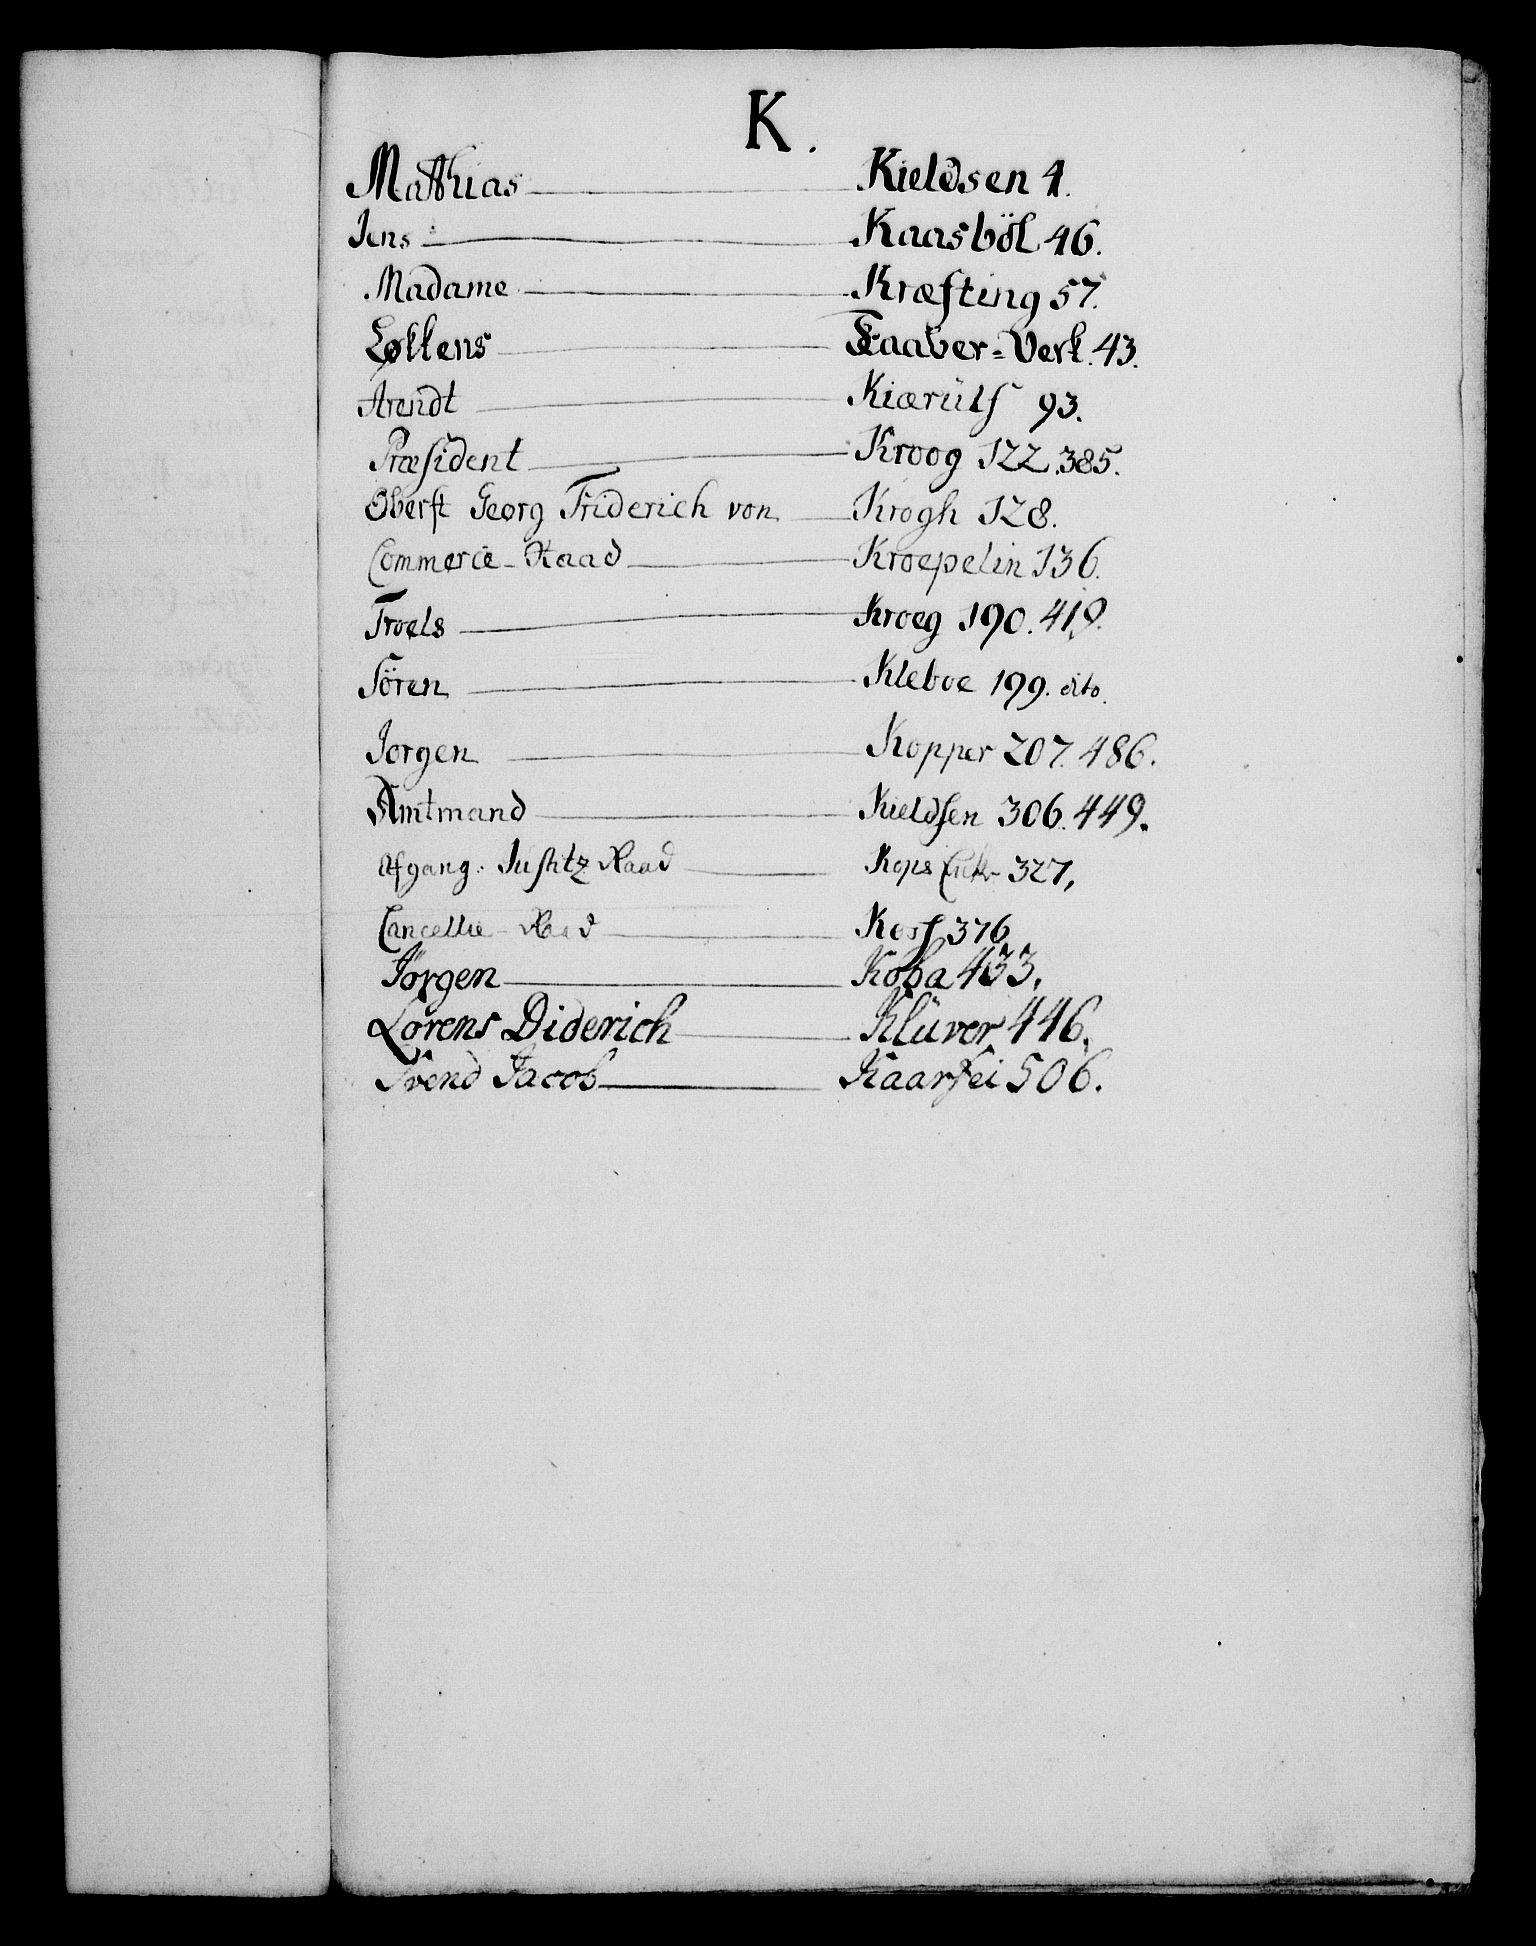 K.
Mathias — Kieldsen 4.
Jens — Kaasböl 46.
Madame — Kræfting 57.
Løkkens — Kaaber=Verk. 43.
Arendt — Kiærülf 93.
Præsident — Kroog 122.385.
Oberst Georg Friderich von — Krogh 128.
Commercie-Raad — Kroepelin 136.
Troels — Kroeg 190. 419.
Sören — Kleboe 199. dito.
Jorgen — Kopper 207. 486.
Amtmand — Kieldsen 306. 449.
Afgang. Justitz Raad — Kops 327,
Cancellie-Raad — 376
Jörgen — Koba 433.
Lorens Diderich — Klüver 446.
Svend Jacob — 506.